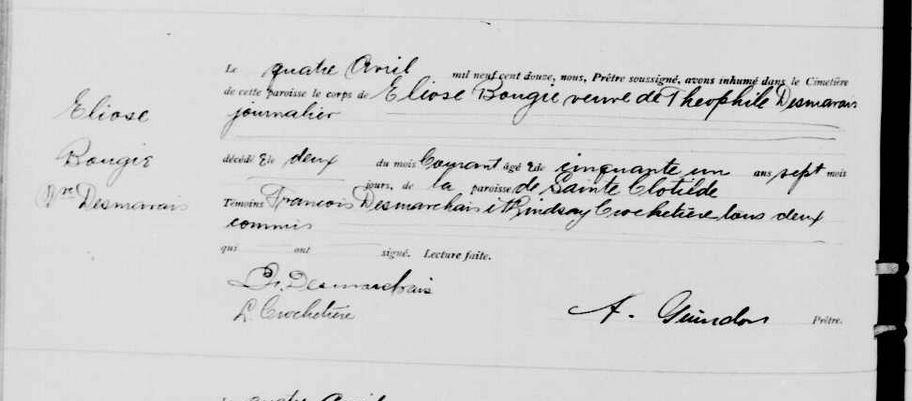 Le quatre Avril mil neuf cent douze, nous, Prêtre soussigné, avons inhumé dans le Cimetière
de cette paroisse le corps de Eliose Bougie veuve de Theophile Desmarais
journalier
Eliose
Bougie
Vve Desmarais
décédé e le deux du mois Courant âgé e de cinquante un ans sept mois
jours, de la paroisse de Sainte Clotilde
Témoins Francois Desmarchais et Lindsay Crochetière tous deux
commis
qui ont signé. Lecture faite.
Fr. Desmarchais
L Crochetière
A. Guindon Prêtre.
quatre Avril